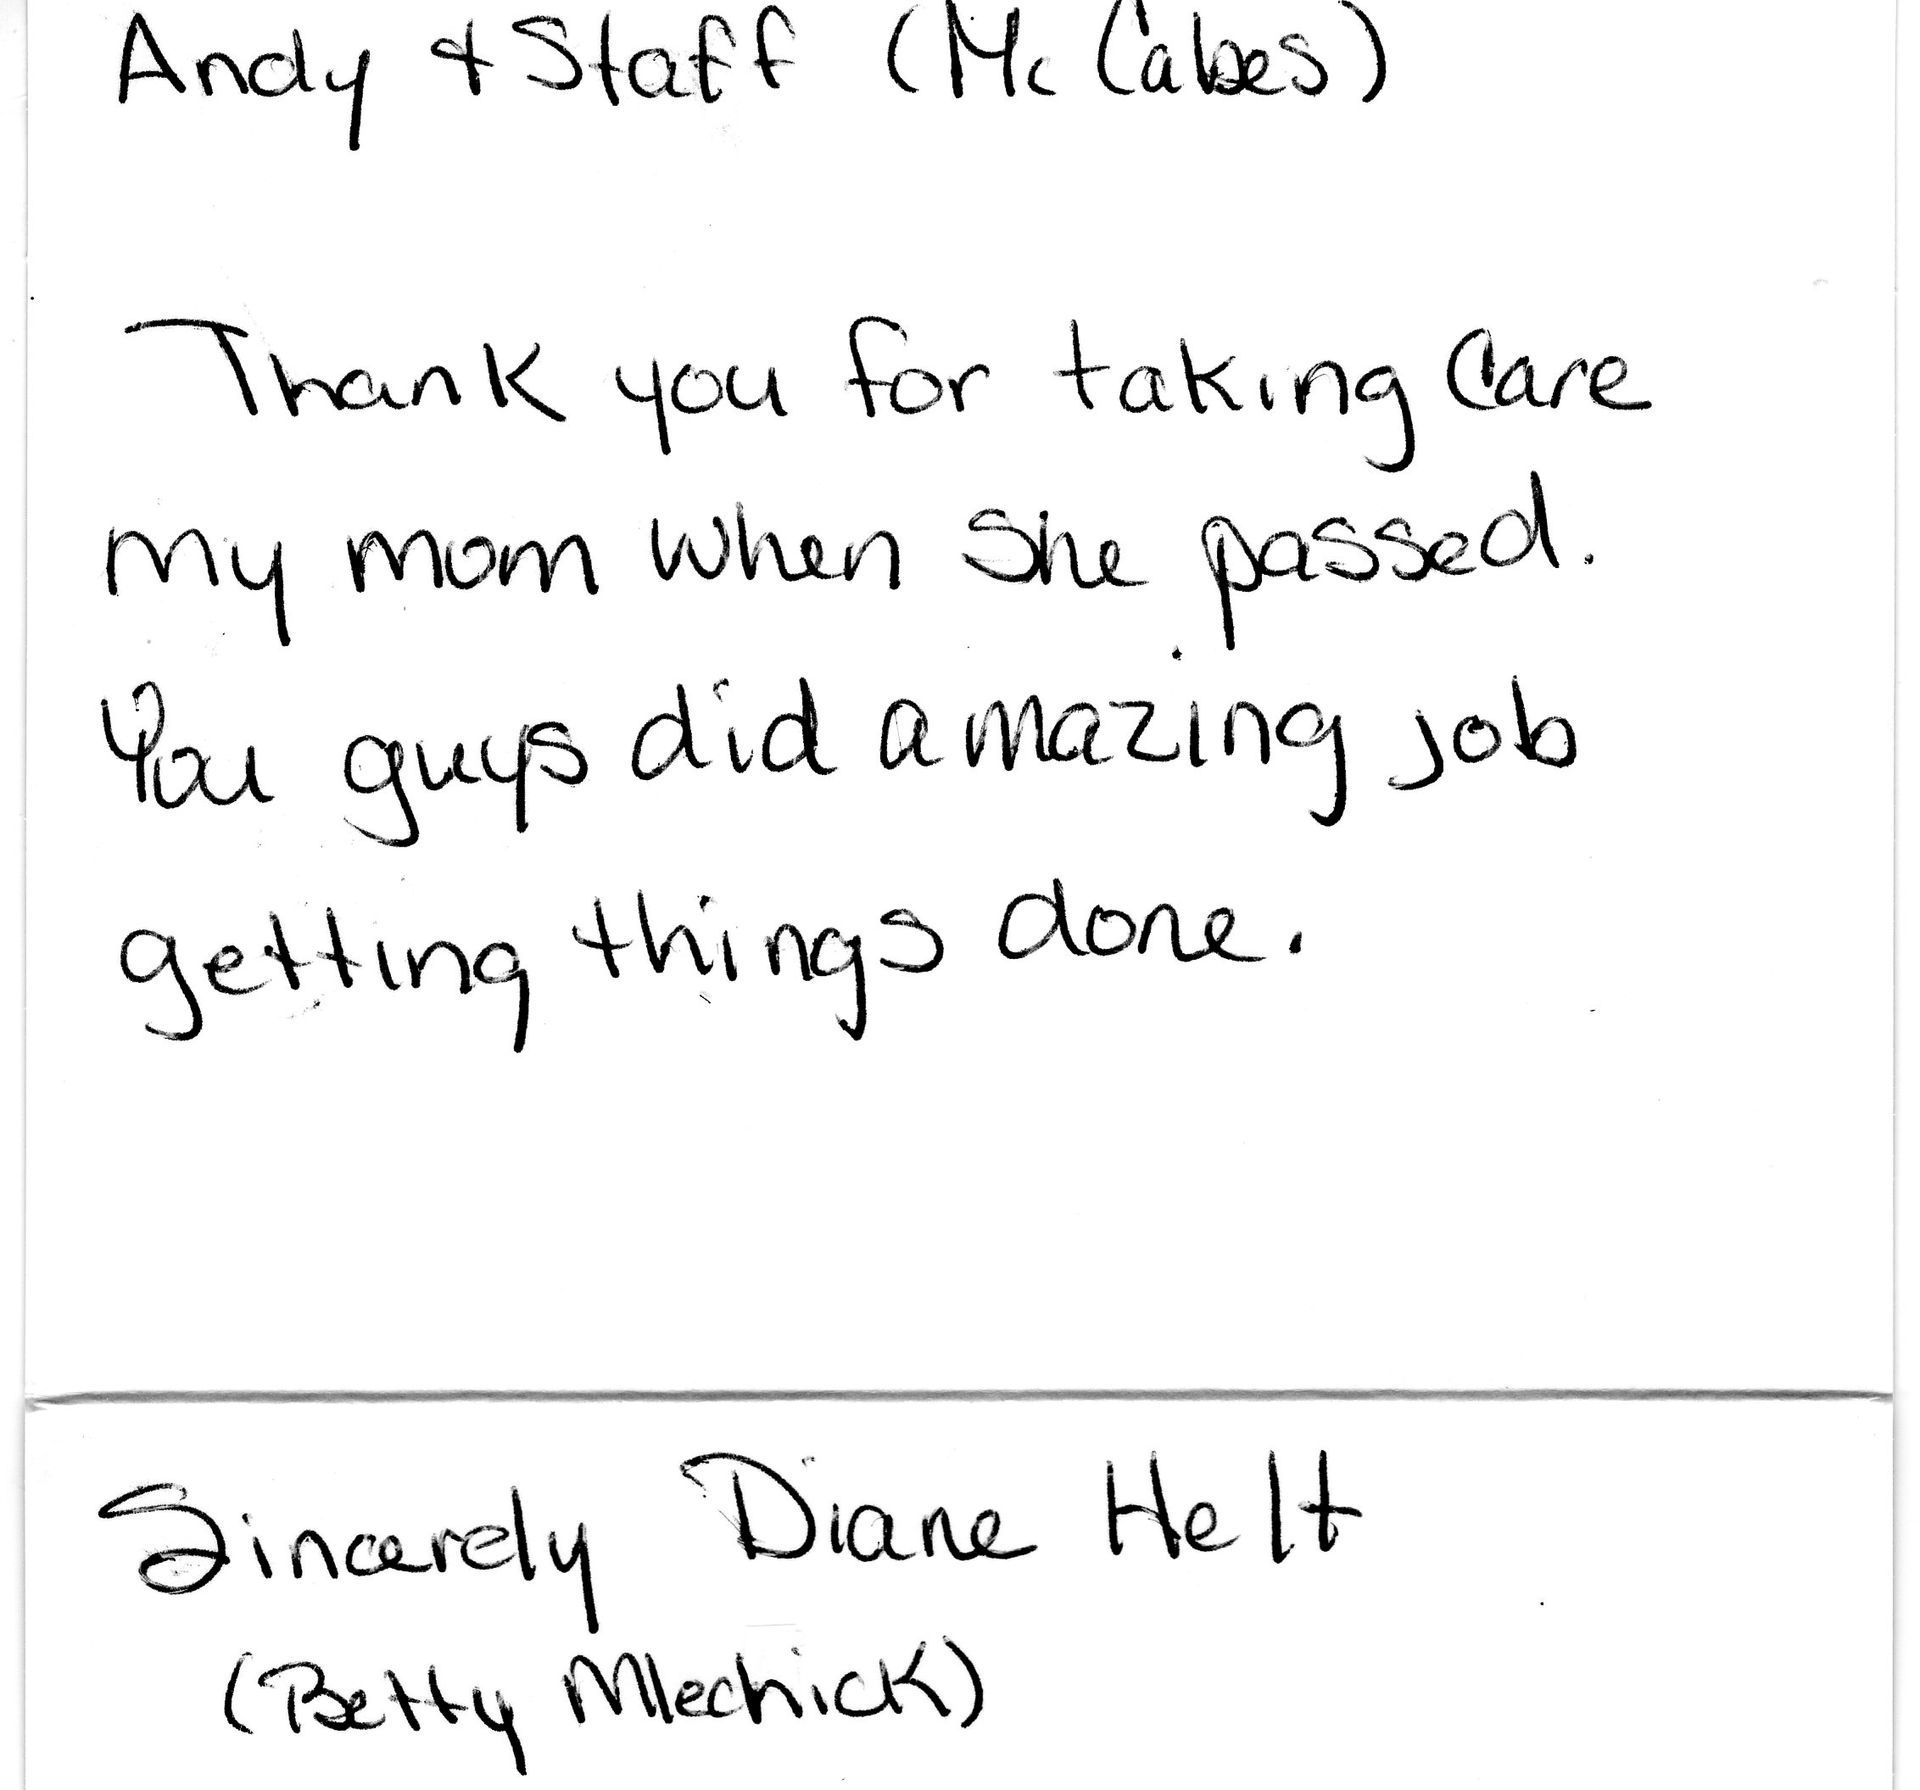 Andy & Staff (McCabes)
Thank you for taking Care
my mom when she passed.
You guys did amazing job
getting things done.
Sincerely Diane Helt
(Betty Mlechick)